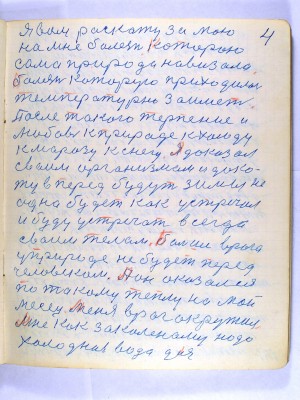 4
Я вам раскажу за мою
на мне болезн которою
сама природа навизала.
болезн которую приходилос
температурно
После такого терпение и
любовь к природе к холоду
к морозу к снегу. Я доказал
своим организмом и дока-
жу в перед будут зимы не
одно будет как устречал
и буду устречат всегда
своим телом. Болши врага
у природе не будет перед
человеком. А он оказался
по такому теплу на мой
месец меня враг окружил
Мне как закаленому надо
холодная вода для